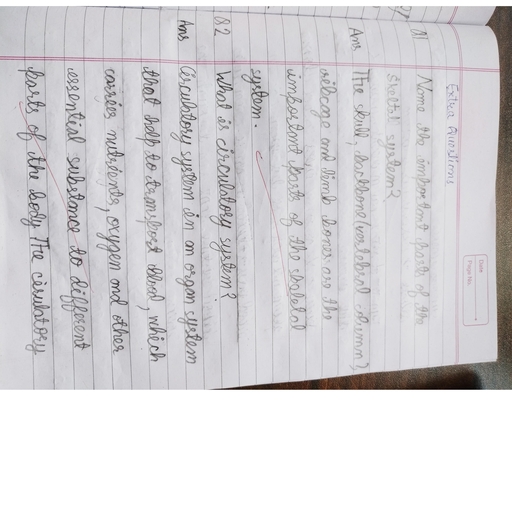 Extra Questions
Date
Page No.
Q1 Name the important parts of the
skeltl system?
Ans The skull, backbone (vertebral column)
ribcage and limb bones are the
important parts of the skeletal
system.
Q.2 What is circulatory system?
Ans Circulatory system in an organ system
that help to transport blood, which
carries nutrients, oxygen and other
essential substance to different
parts of the body The circulatory